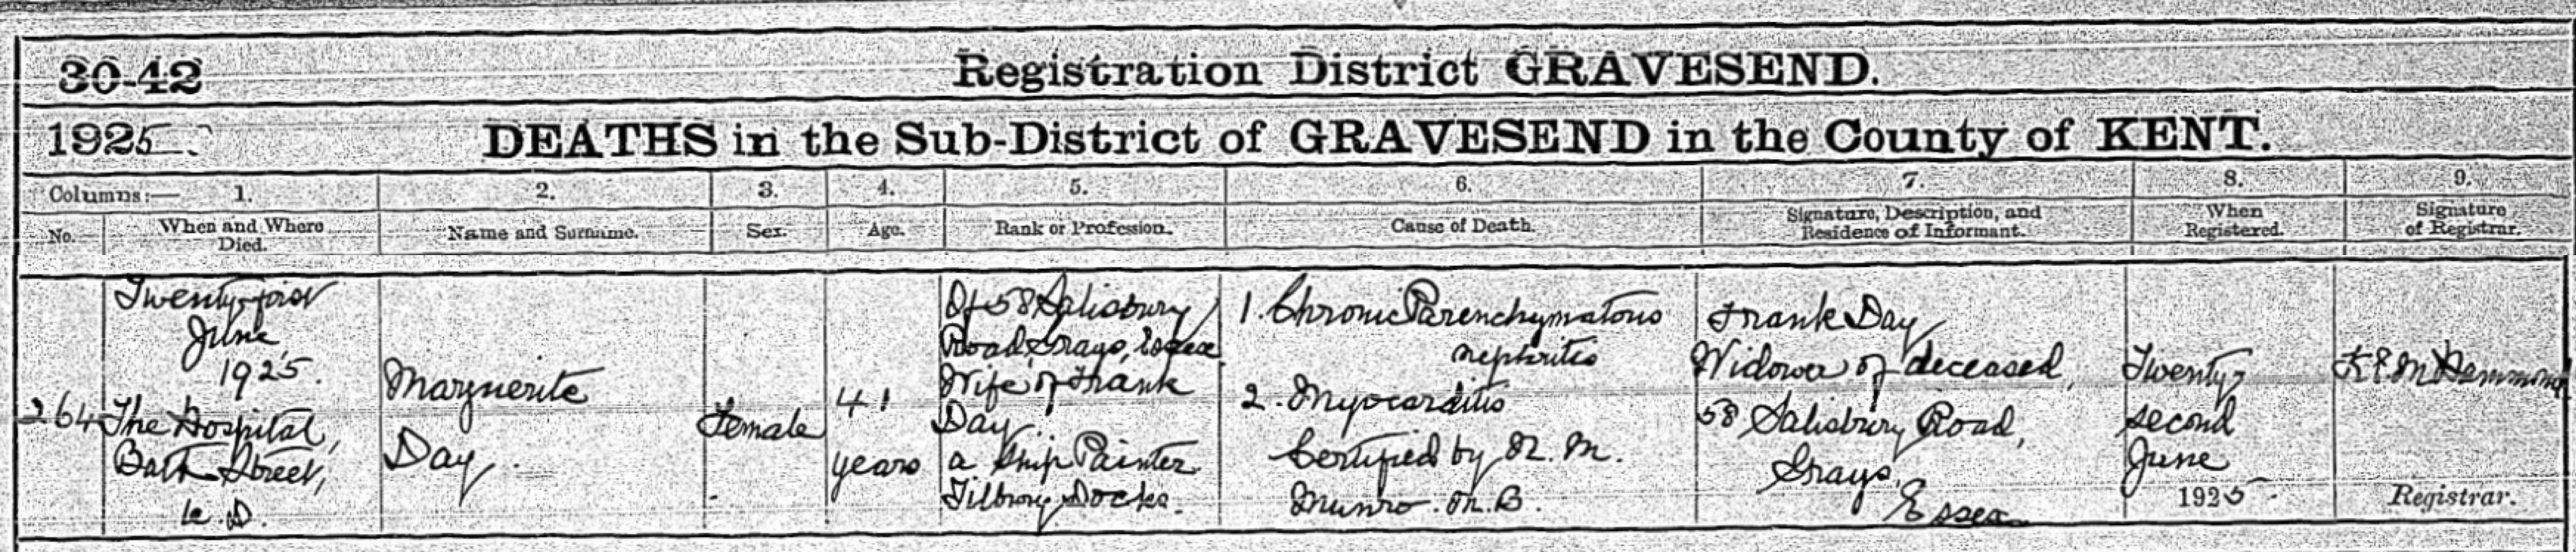 30-42 Registration District GRAVESEND.
1925. DEATHS in the Sub-District of GRAVESEND in the County of KENT.
Columns:— 1. 2. 3. 4. 5. 6. 7. 8. 9.
No. When and Where Died. Name and Surname. Sex. Age. Rank or Profession. Cause of Death. Signature, Description, and Residence of Informant. When Registered. Signature of Registrar.
264
Twenty-first
June
1925.
The Hospital,
Bath Street,
U.D.
Marguerite
Day.
Female
41
years
Of 58 Salisbury
Road Grays, Essex
Wife of Frank
Day
a Ship Painter
Tilbury Docks.
1. Chronic Parenchymatous
nephritis
2. Myocarditis
Certified by R. M.
Munro. M.B.
Frank Day
Widower of deceased,
58 Salisbury Road,
Grays,
Essex
Twenty-
second
June
1925.
Registrar.